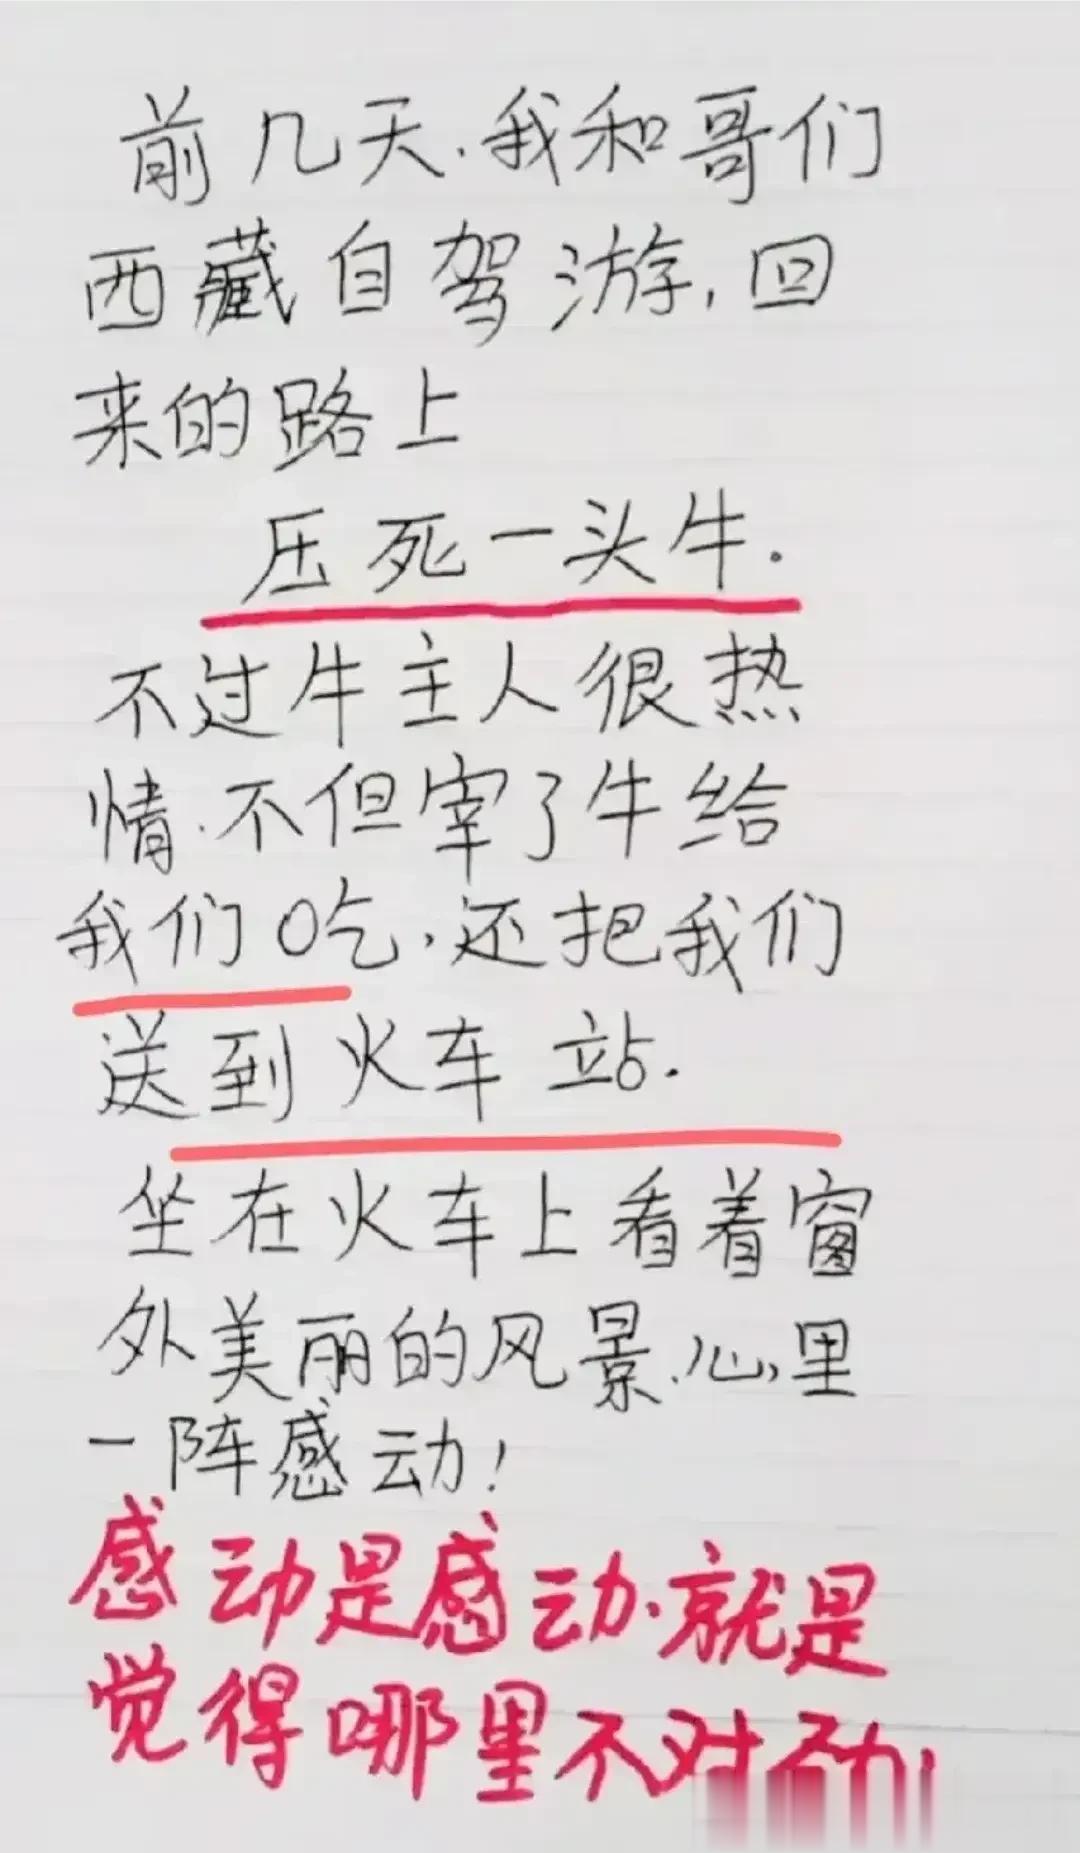 前几天.我和哥们
西藏自驾游,回
来的路上
压死一头牛.
不过牛主人很热
情.不但宰了牛给
我们吃.还把我们
送到火车站.
坐在火车上看着窗
外美丽的风景.心里
一阵感动!
感动是感动.就是
觉得哪里不对劲!